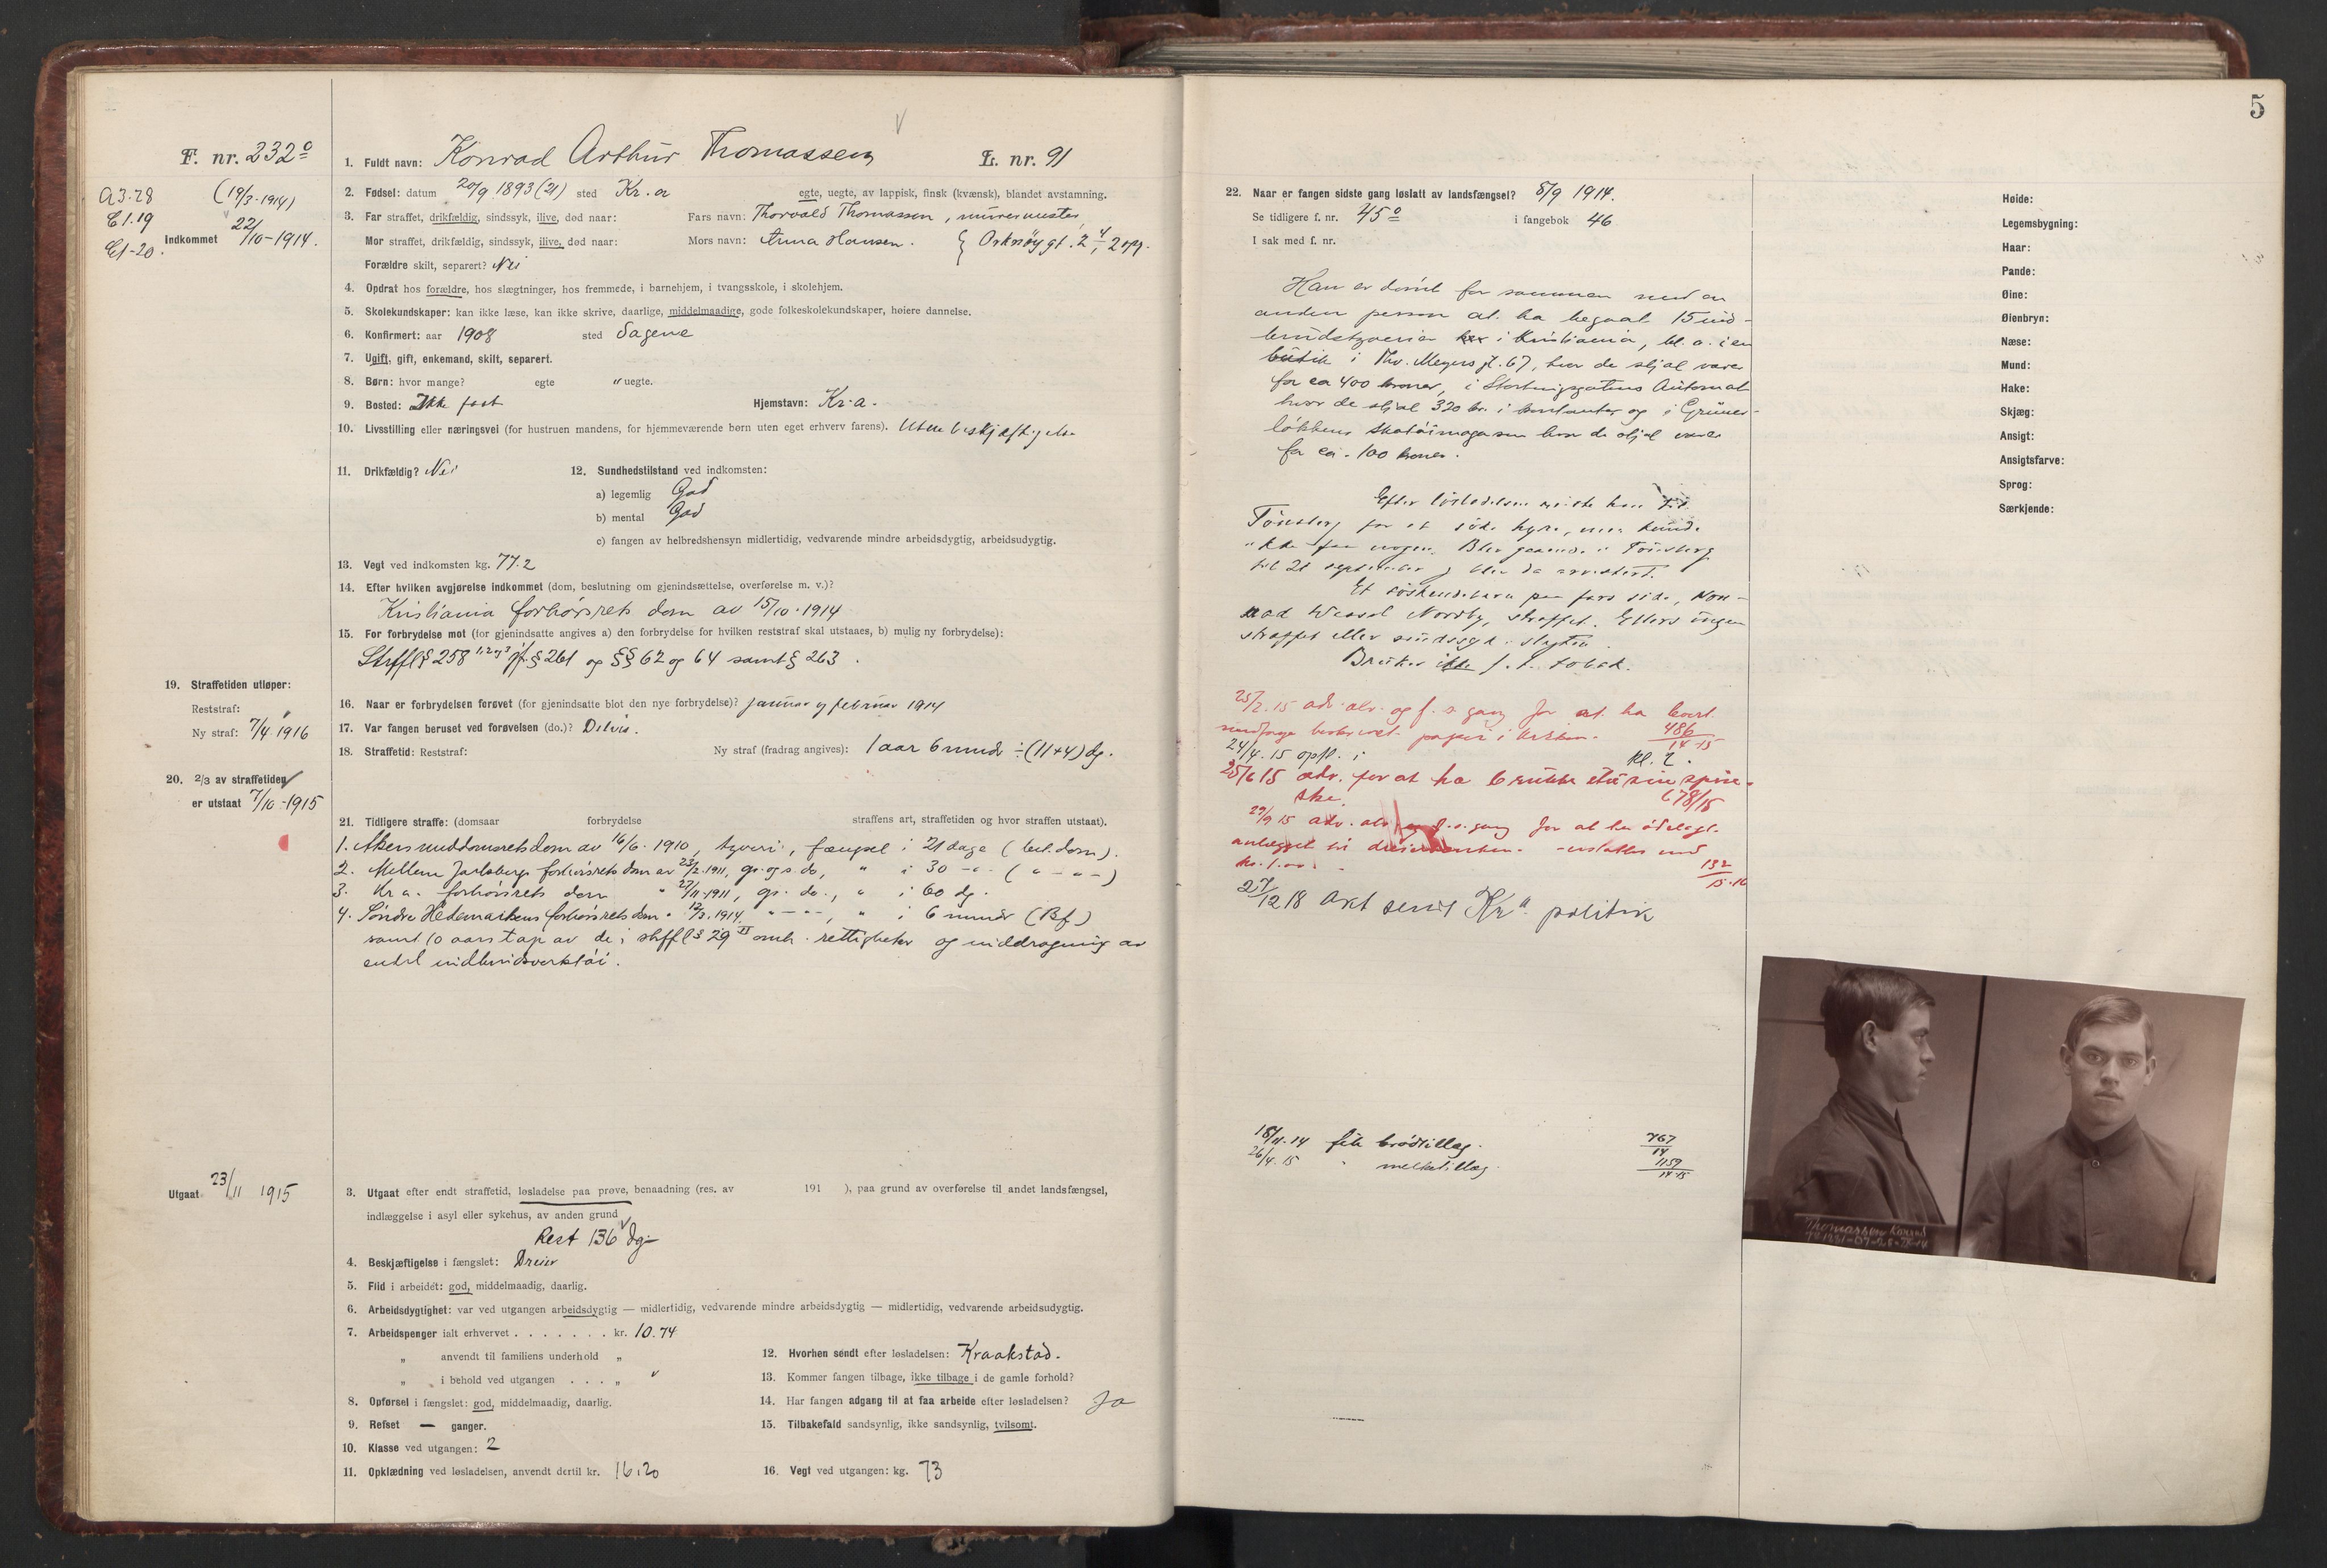 5
F. nr. 232º
1. Fuldt navn: Konrad Arthur Thomassen L. nr. 91
A3.28
(19/3-1914)
E1.19
E1-20.
Indkommet 22/10-1914.
2. Fødsel: datum 20/9 1893 (21) sted Kr.a egte, uegte, av lappisk, finsk (kvænsk), blandet avstamning.
3. Far straffet, drikfældig, sindssyk, ilive, død naar: Fars navn: Thorvald Thomassen, murermester
Mor straffet, drikfældig, sindssyk, ilive, død naar: Mors navn: Anna Hansen.
Forældre skilt, separert? Nei
4. Opdrat hos forældre, hos slægtninger, hos fremmede, i barnehjem, i tvangsskole, i skolehjem.
5. Skolekundskaper: kan ikke læse, kan ikke skrive, daarlige, middelmaadige, gode folkeskolekundskaper, høiere dannelse.
6. Konfirmert: aar 1908 sted Sagene
7. Ugift, gift, enkemand, skilt, separert.
8. Børn: hvor mange? egte " uegte.
9. Bosted: Ikke fast Hjemstavn: Kr.a.
10. Livsstilling eller næringsvei (for hustruen mandens, for hjemmeværende børn uten eget erhverv farens). Uten beskjæftigelse
11. Drikfældig? Nei 12. Sundhedstilstand ved indkomsten:
a) legemlig God
b) mental God
c) fangen av helbredshensyn midlertidig, vedvarende mindre arbeidsdygtig, arbeidsudygtig.
13. Vegt ved indkomsten kg. 77.2
14. Efter hvilken avgjørelse indkommet (dom, beslutning om gjenindsættelse, overførelse m. v.)?
Kristiania forhørsrets dom av 15/10-1914
15. For forbrydelse mot (for gjenindsatte angives a) den forbrydelse for hvilken reststraf skal utstaaes, b) mulig ny forbrydelse):
Strffl § 258 1,2og3 jf. § 261 og §§ 62 og 64 samt § 263.
16. Naar er forbrydelsen forøvet (for gjenindsatte blot den nye forbrydelse)? januar og februar 1914
17. Var fangen beruset ved forøvelsen (do.)? Delvis.
18. Straffetid: Reststraf: Ny straf (fradrag angives): 1 aar 6 mndr ÷ (11+4) dg.
19. Straffetiden utløper:
Reststraf:
Ny straf: 7/4 1916
20. 2/3 av straffetiden
er utstaat 7/10-1915
21. Tidligere straffe: (domsaar forbrydelse straffens art, straffetiden og hvor straffen utstaat).
1. Akers meddomsrets dom av 16/6-1910, tyveri, fængsel i 21 dage (bet. dom).
2. Mellem Jarlsbergs forhørsrets dom av 23/2-1911, gr. og s. do, " i 30 -"- ( " - " - )
3. Kr.a. forhørsrets dom " 27/11-1911, gr. do., " i 60 dg.
4. Søndre Hedemarkens forhørsrets dom " 12/3.1914, "-"-, " i 6 mndr (Bf)
samt 10 aars tap av de i strffl § 29 II omh. rettigheter og inddragning av
endel indbrudsverktøi.
Utgaat 23/11 1915
3. Utgaat efter endt straffetid, løsladelse paa prøve, benaadning (res. av 191 ), paa grund av overførelse til andet landsfængsel,
indlæggelse i asyl eller sykehus, av anden grund
Rest 136 dg
4. Beskjæftigelse i fængslet: Dreier
5. Flid i arbeidet: god, middelmaadig, daarlig.
6. Arbeidsdygtighet: var ved utgangen arbeidsdygtig — midlertidig, vedvarende mindre arbeidsdygtig — midlertidig, vedvarende arbeidsudygtig.
7. Arbeidspenger ialt erhvervet . . . . . . . kr. 10.74
„ anvendt til familiens underhold „
„ i behold ved utgangen . . . „
8. Opførsel i fængslet: god, middelmaadig, daarlig.
9. Refset — ganger.
10. Klasse ved utgangen: 2
11. Opklædning ved løsladelsen, anvendt dertil kr. 16.20
12. Hvorhen sendt efter løsladelsen: Kraakstad.
13. Kommer fangen tilbage, ikke tilbage i de gamle forhold?
14. Har fangen adgang til at faa arbeide efter løsladelsen? Ja
15. Tilbakefald sandsynlig, ikke sandsynlig, tvilsomt.
16. Vegt ved utgangen: kg. 73
22. Naar er fangen sidste gang løslatt av landsfængsel? 8/9 1914.
Se tidligere f. nr. 45º i fangebok 46
I sak med f. nr.
Han er dømt for sammen med en
anden person at ha begaat 15 ind-
brudstyverier i Kristiania, bl. a. i en
butik i Thv. Meyers gt. 67, hvor de stjal varer
for ca 400 kroner, i Stortingsgatens Automat
hvor de stjal 320 kr. i kontanter og i Grüner-
løkkens skotøimagasin hvor de stjal varer
for ca. 100 kroner.
Efter løsladelsen reiste han til
Tønsberg for at søke hyre, men kunde
ikke faa nogen. Blev gaaende i Tønsberg
til 21 september og blev da arrestert.
Et søskendebarn paa fars side, Kon-
rad Wessel Nordby, straffet. Ellers ingen
straffet eller sindssyk i slegten.
Bruker ikke tobak.
25/2.15 adv. alv. og f. s. gang for at ha levert
medfange beskrevet papir i kirken. 486/14-15
24/4.15 opfl. i kl. 2.
25/6 15 adv. for at ha brukket itu sin spise-
ske. 678/15
29/9 15 adv. alv. og f. s. gang for at ha ødelagt
kr. 1.00. 132/15-16
27/12 18 Akt sendt Kra politik
18/11.14 fik brødtillæg. 767/14
26/4.15 " melketillæg. 1159/14-15
Høide:
Legemsbygning:
Haar:
Pande:
Øine:
Øienbryn:
Næse:
Mund:
Hake:
Skjæg:
Ansigt:
Ansigtsfarve:
Sprog:
Særkjende:
Thomassen Konrad